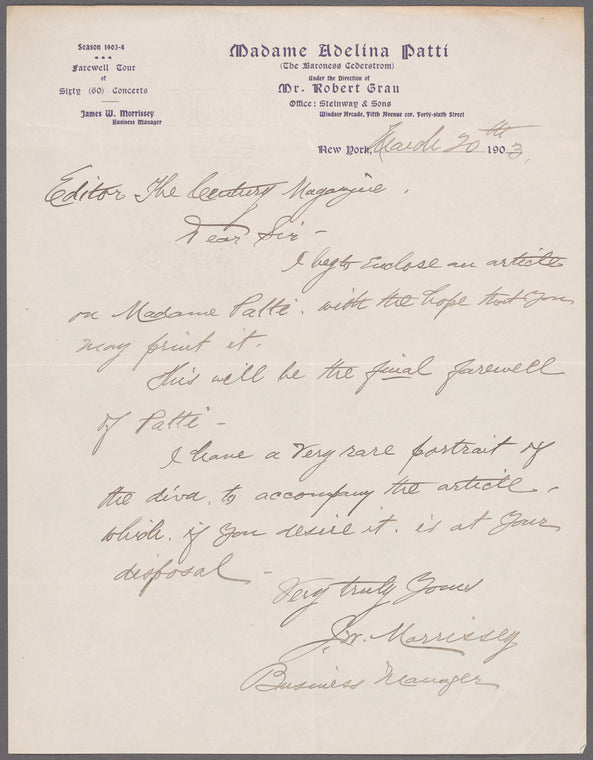 Season 1903-4
Farewell Tour
of
Sixty (60) Concerts
James W. Morrissey
Business Manager
Madame Adelina Patti
(The Baroness Cederstrom)
Under the Direction of
Mr. Robert Grau
Office: Steinway & Sons
Windsor Arcade, Fifth Avenue cor. Forty-sixth Street
New York, March 20th 1903.
Editor The Century Magazine.
Dear Sir -
I beg to enclose an article
on Madame Patti. with the hope that you
may print it.
This will be the final farewell
of Patti -
I have a very rare portrait of
the diva, to accompany the article -
which, if you desire it. is at your
disposal -
Very truly Yours
J.W. Morrissey
Business Manager